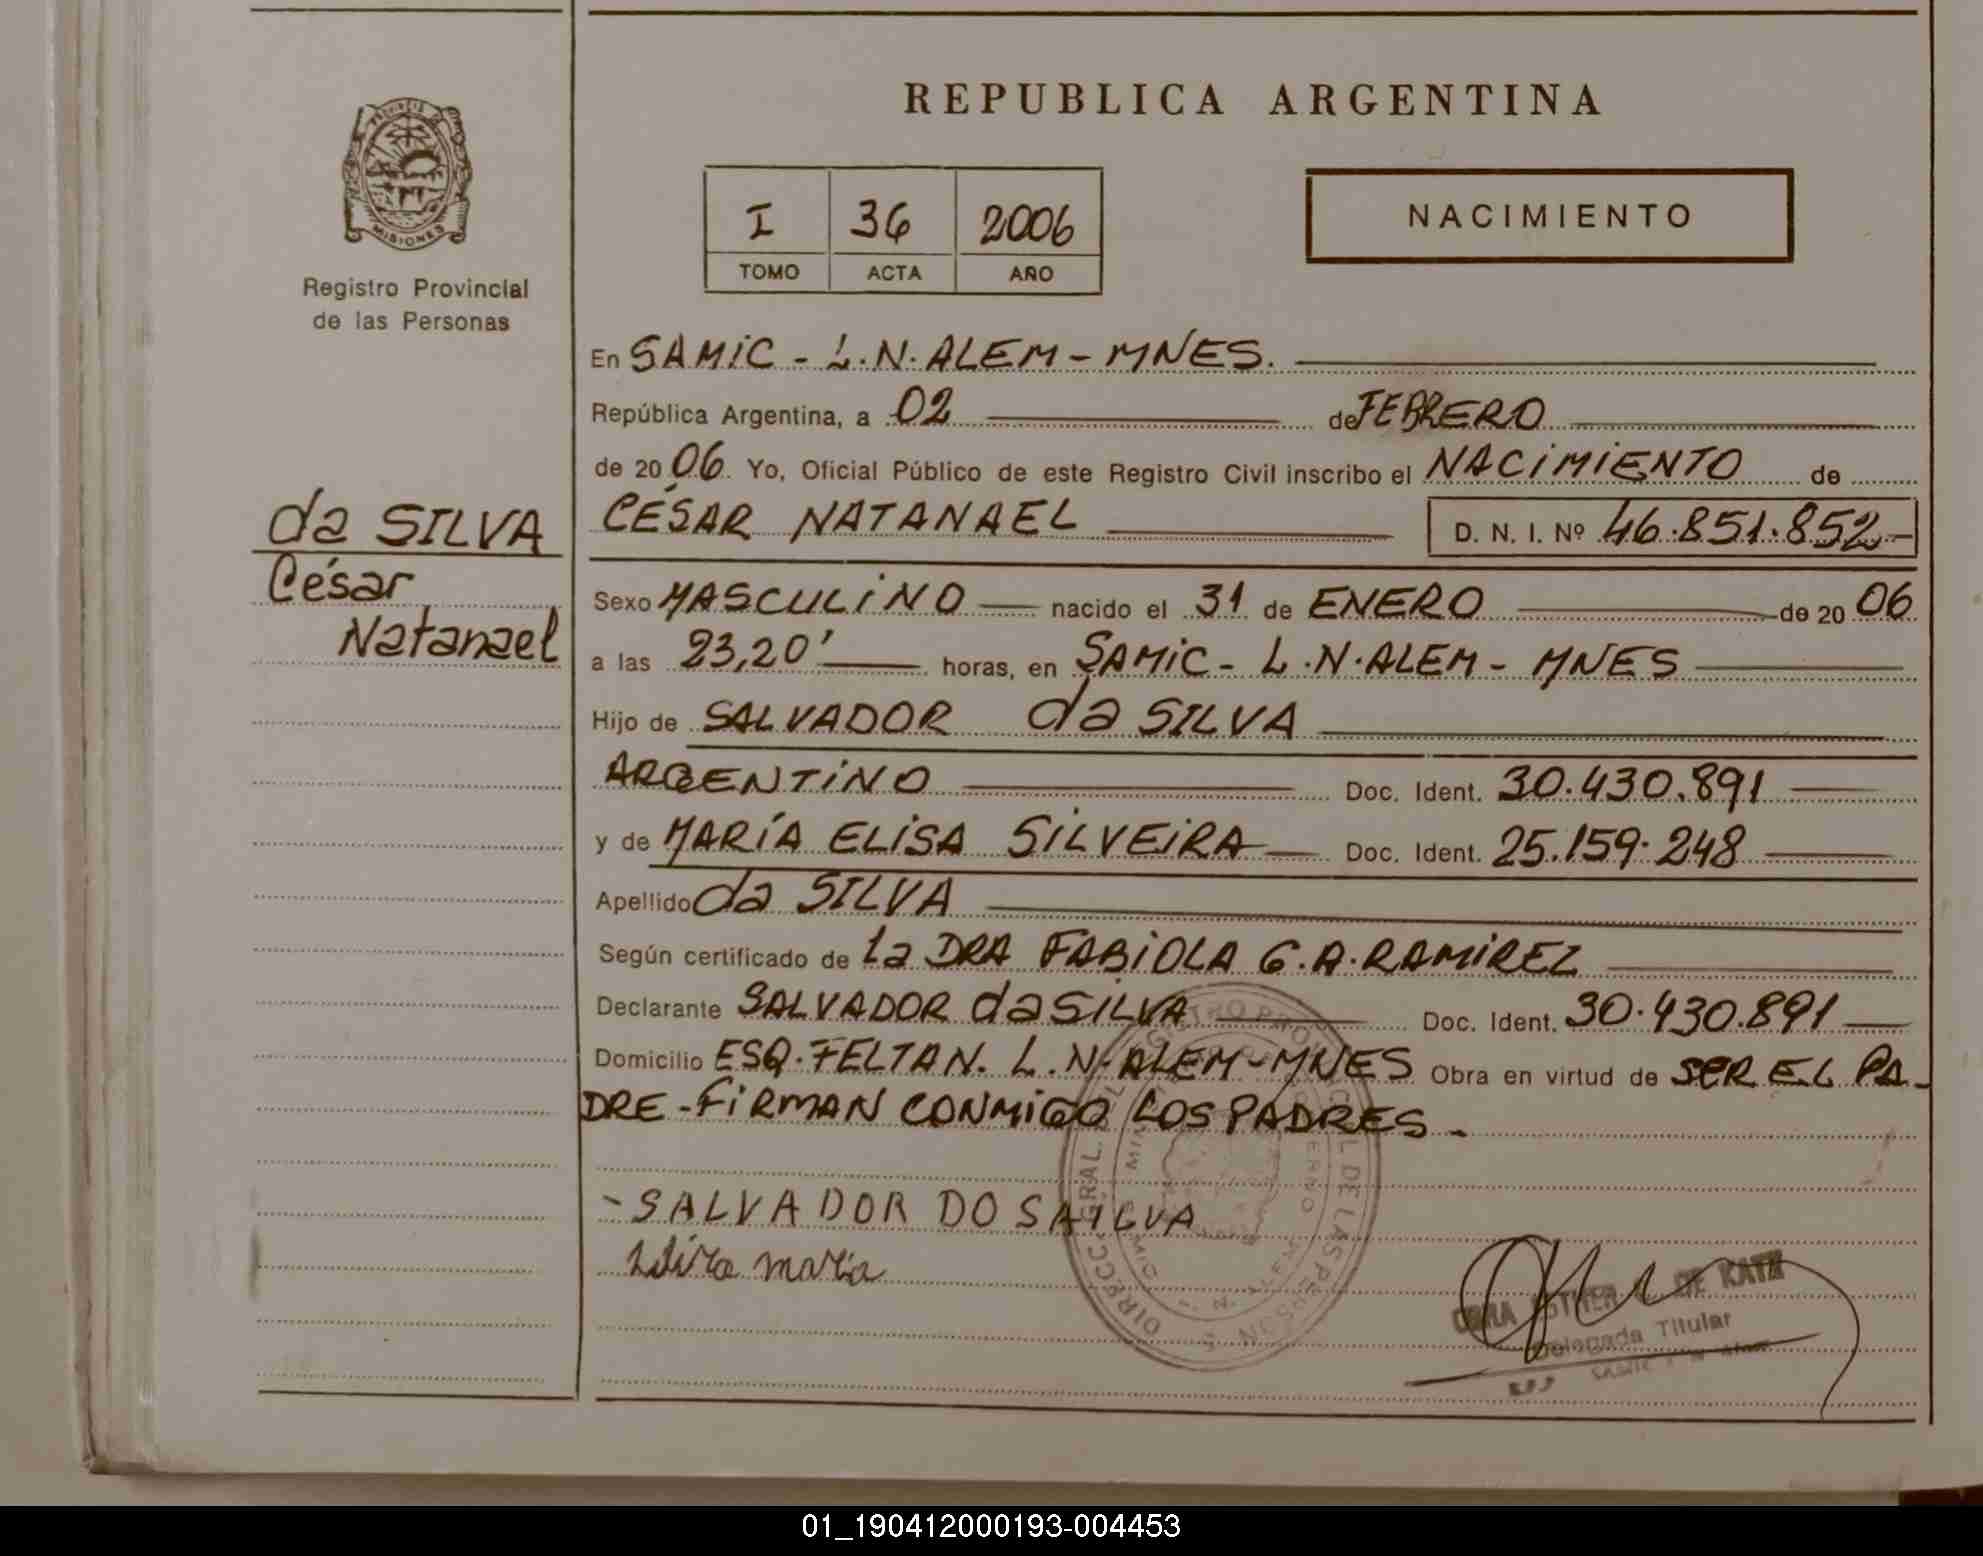 REPUBLICA ARGENTINA
MISIONES
Registro Provincial
de las Personas
I 36 2006
TOMO ACTA AÑO
NACIMIENTO
da SILVA
César
Natanael
En SAMIC - L.N. ALEM - MNES.
República Argentina, a 02 de FEBRERO
de 2006. Yo, Oficial Público de este Registro Civil inscribo el NACIMIENTO de
CÉSAR NATANAEL D. N. I. Nº 46.851.852-
Sexo MASCULINO nacido el 31 de ENERO de 2006
a las 23,20' horas, en SAMIC - L.N. ALEM - MNES
Hijo de SALVADOR da SILVA
ARGENTINO Doc. Ident. 30.430.891
y de MARÍA ELISA SILVEIRA Doc. Ident. 25.159.248
Apellido da SILVA
Según certificado de la DRA FABIOLA G.A. RAMIREZ
Declarante SALVADOR da SILVA Doc. Ident. 30.430.891
Domicilio ESQ. FELTAN. L.N. ALEM - MNES Obra en virtud de SER EL PA-
DRE - FIRMAN CONMIGO LOS PADRES.-
- SALVADOR DO SAILVA
maria
DE KATZ
Delegada Titular
01_190412000193-004453